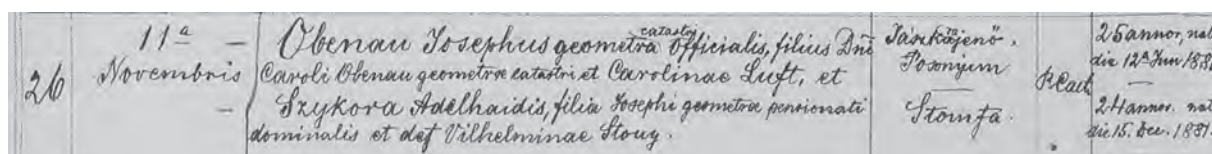 26
11ª —
Novembris
—
catastri
Obenau Josephus geometra officialis, filius Dni
Caroli Obenau geometrae catastri et Carolinae Luft, et
Szykora Adelhaidis, filia Josephi geometrae pensionati
dominalis et def Vilhelminae Stouy.
Jászkajenő,
Posonyum
—
Stomfa.
R. Cath
25 annor, nat
die 12ª Jun 188
—
24 annor. nat
die 15. Dec. 1881.